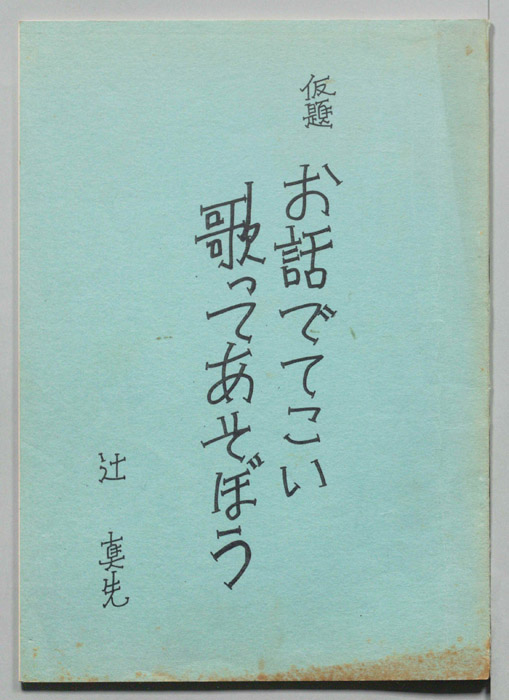 仮題
お話でてこい
歌ってあそぼう
辻真先